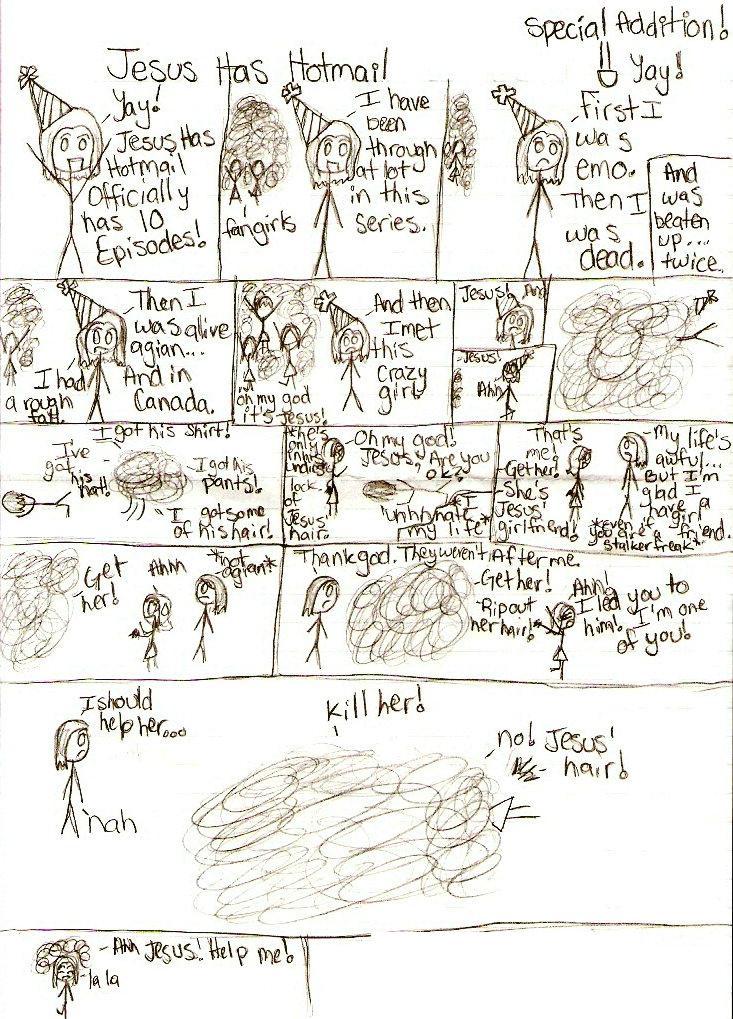 Special Addition!
Jesus Has Hotmail
Yay!
Yay!
Jesus Has
Hotmail
Officially
has 10
Episodes!
fangirls
I have
been
through
at lot
in this
series.
First I
was
emo.
Then I
was
dead.
And
was
beaten
up....
twice.
Then I
was alive
agian...
And in
Canada.
I had
a rough
fall.
oh my god
it's Jesus!
And then
I met
this
crazy
girl.
Jesus!
And
Jesus!
Ahh
I got his shirt!
I've
got
his
hat!
I got his
pants!
I got some
of his hair!
only
in his
lock
of
Jesus'
hair.
Oh my god!
Jesus, Are you
ok?
my life*
That's
me!
Get her!
She's
Jesus'
girlfriend!
My life's
awful...
But I'm
glad I
have a
girl
friend.
*even if
you are a
stalker freak*
Get
her!
Ahhh
*not
agian*
Thank god. They weren't After me.
Get her!
Rip out
her hair!
Ahh!
I led you to
him!
I'm one
of you!
I should
help her...
nah
Kill her!
no! Jesus'
hair!
Ahh Jesus! Help me!
la la